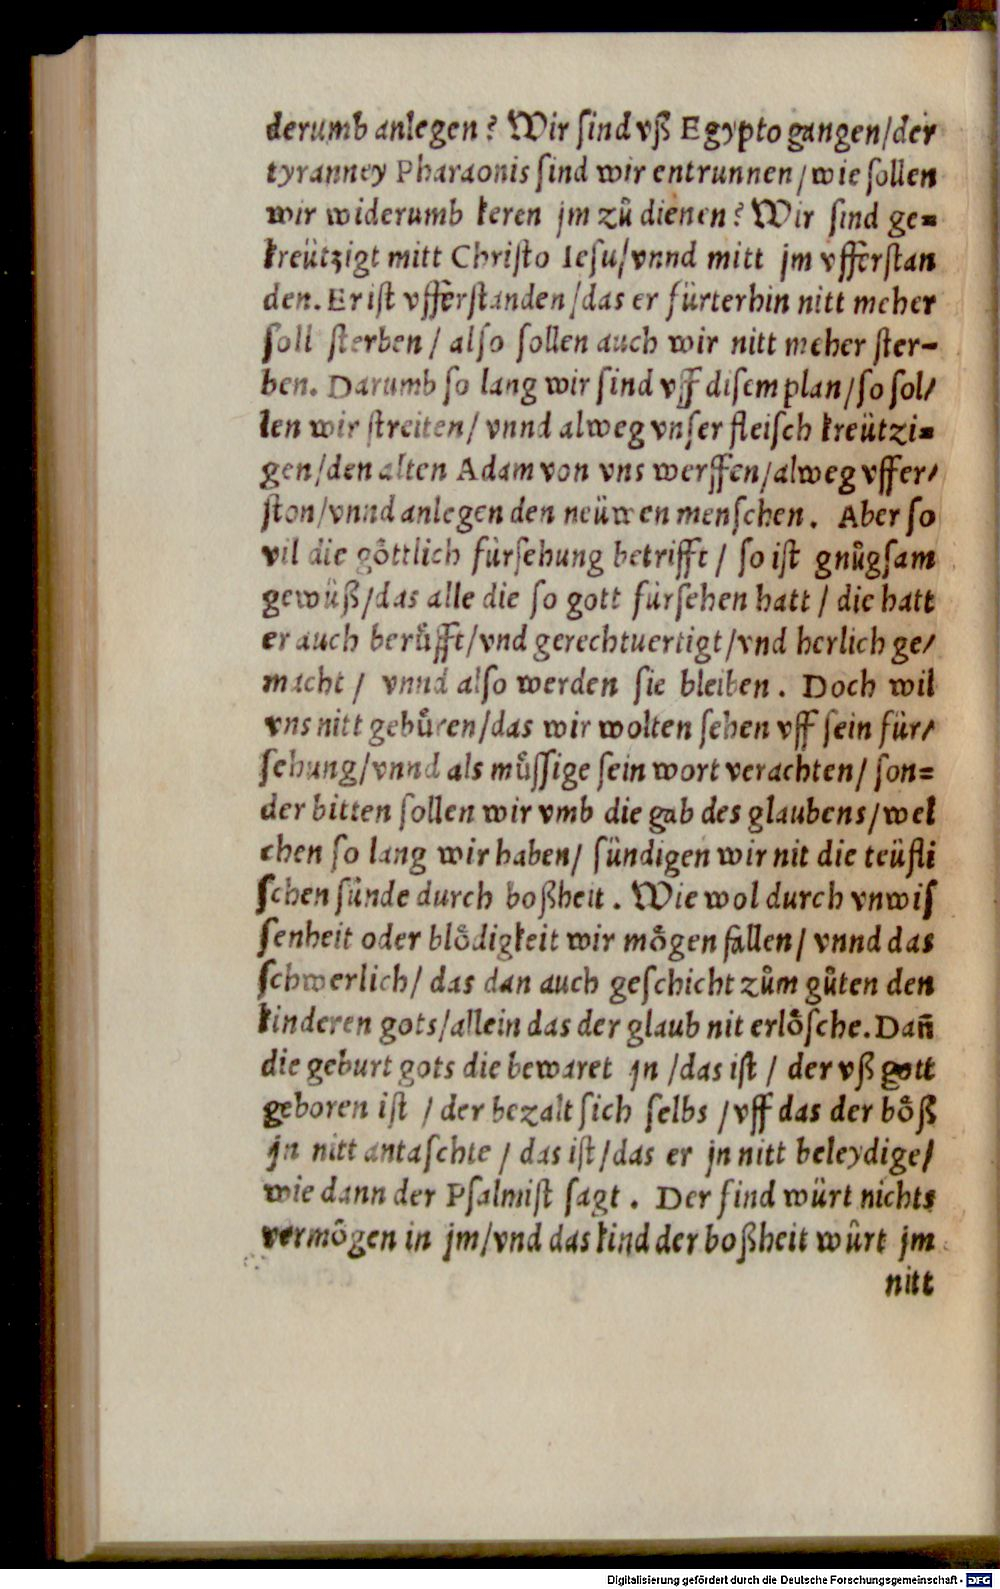 derumb anlegen? Wir ſind vß Egypto gangen/der
tyranney Pharaonis ſind wir entrunnen/wie ſollen
wir widerumb keren jm zů dienen? Wir ſind ge=
kreützigt mitt Chriſto Ieſu/vnnd mitt jm vfferſtan
den. Er iſt vfferſtanden/das er fürterhin nitt meher
ſoll ſterben/ alſo ſollen auch wir nitt meher ſter-
ben. Darumb ſo lang wir ſind vff diſem plan/ſo ſol/
len wir ſtreiten/ vnnd alweg vnſer fleiſch kreützi=
gen/den alten Adam von vns werffen/alweg vffer/
ſton/vnnd anlegen den neüwen menſchen. Aber ſo
vil die goͤttlich fürſehung betrifft / ſo iſt gnůgſam
gewüß/das alle die ſo gott fürſehen hatt / die hatt
er auch berůfft/vnd gerechtuertigt/vnd herlich ge/
macht / vnnd alſo werden ſie bleiben. Doch wil
vns nitt gebůren/das wir wolten ſehen vff ſein für/
ſehung/vnnd als můſſige ſein wort verachten/ ſon=
der bitten ſollen wir vmb die gab des glaubens/wel
chen ſo lang wir haben/ ſündigen wir nit die teüfli
ſchen ſünde durch boßheit. Wie wol durch vnwiſ
ſenheit oder bloͤdigkeit wir moͤgen fallen/ vnnd das
ſchwerlich/ das dan auch geſchicht zům gůten den
kinderen gots/allein das der glaub nit erloͤſche. Dañ
die geburt gots die bewaret jn /das iſt / der vß gott
geboren iſt / der bezalt ſich ſelbs /vff das der boͤß
jn nitt antaſchte / das iſt/das er jn nitt beleydige/
wie dann der Pſalmiſt ſagt. Der find würt nichts
vermoͤgen in jm/vnd das kind der boßheit würt jm
nitt
Digitalisierung gefördert durch die Deutsche Forschungsgemeinschaft - DFG